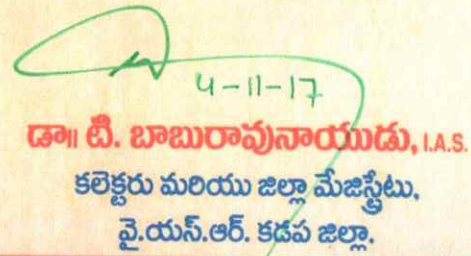 4-11-17
డా॥ టి. బాబురావునాయుడు, I.A.S.
కలెక్టరు మరియు జిల్లా మేజిస్ట్రేటు,
వై.యస్.ఆర్. కడప జిల్లా.